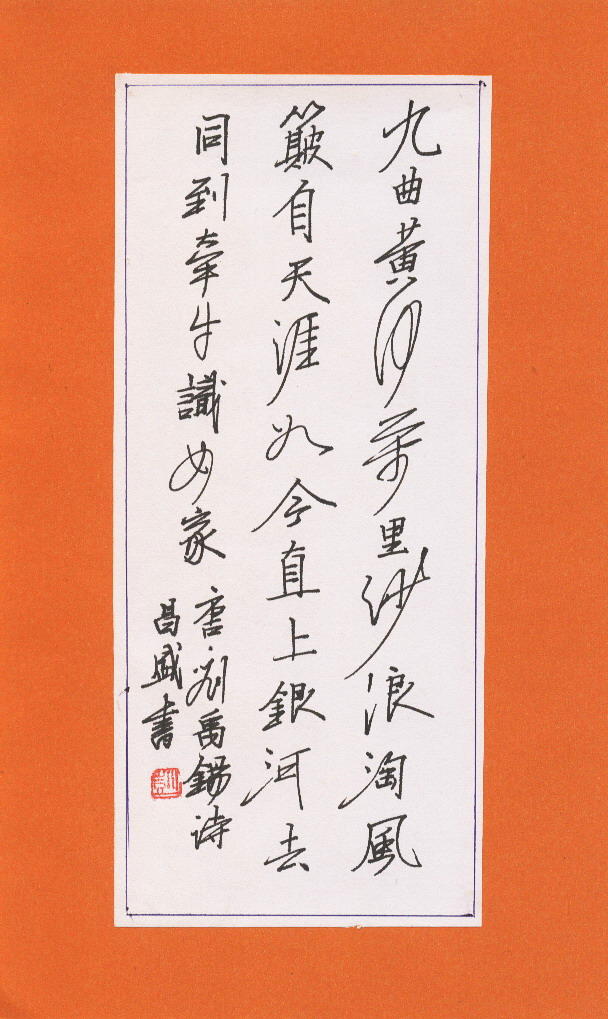 九曲黄河萬里沙浪淘風
簸自天涯如今直上銀河去
同到牽牛識女家 唐·刘禹錫诗
昌盛書